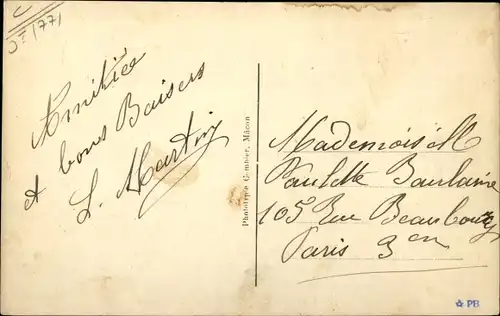 Amitiées
et bons Baisers
L. Martin
Phototypie Combier, Mâcon
Mademoiselle
Paulette
105 Rue Beaubourg
Paris 3em
PB